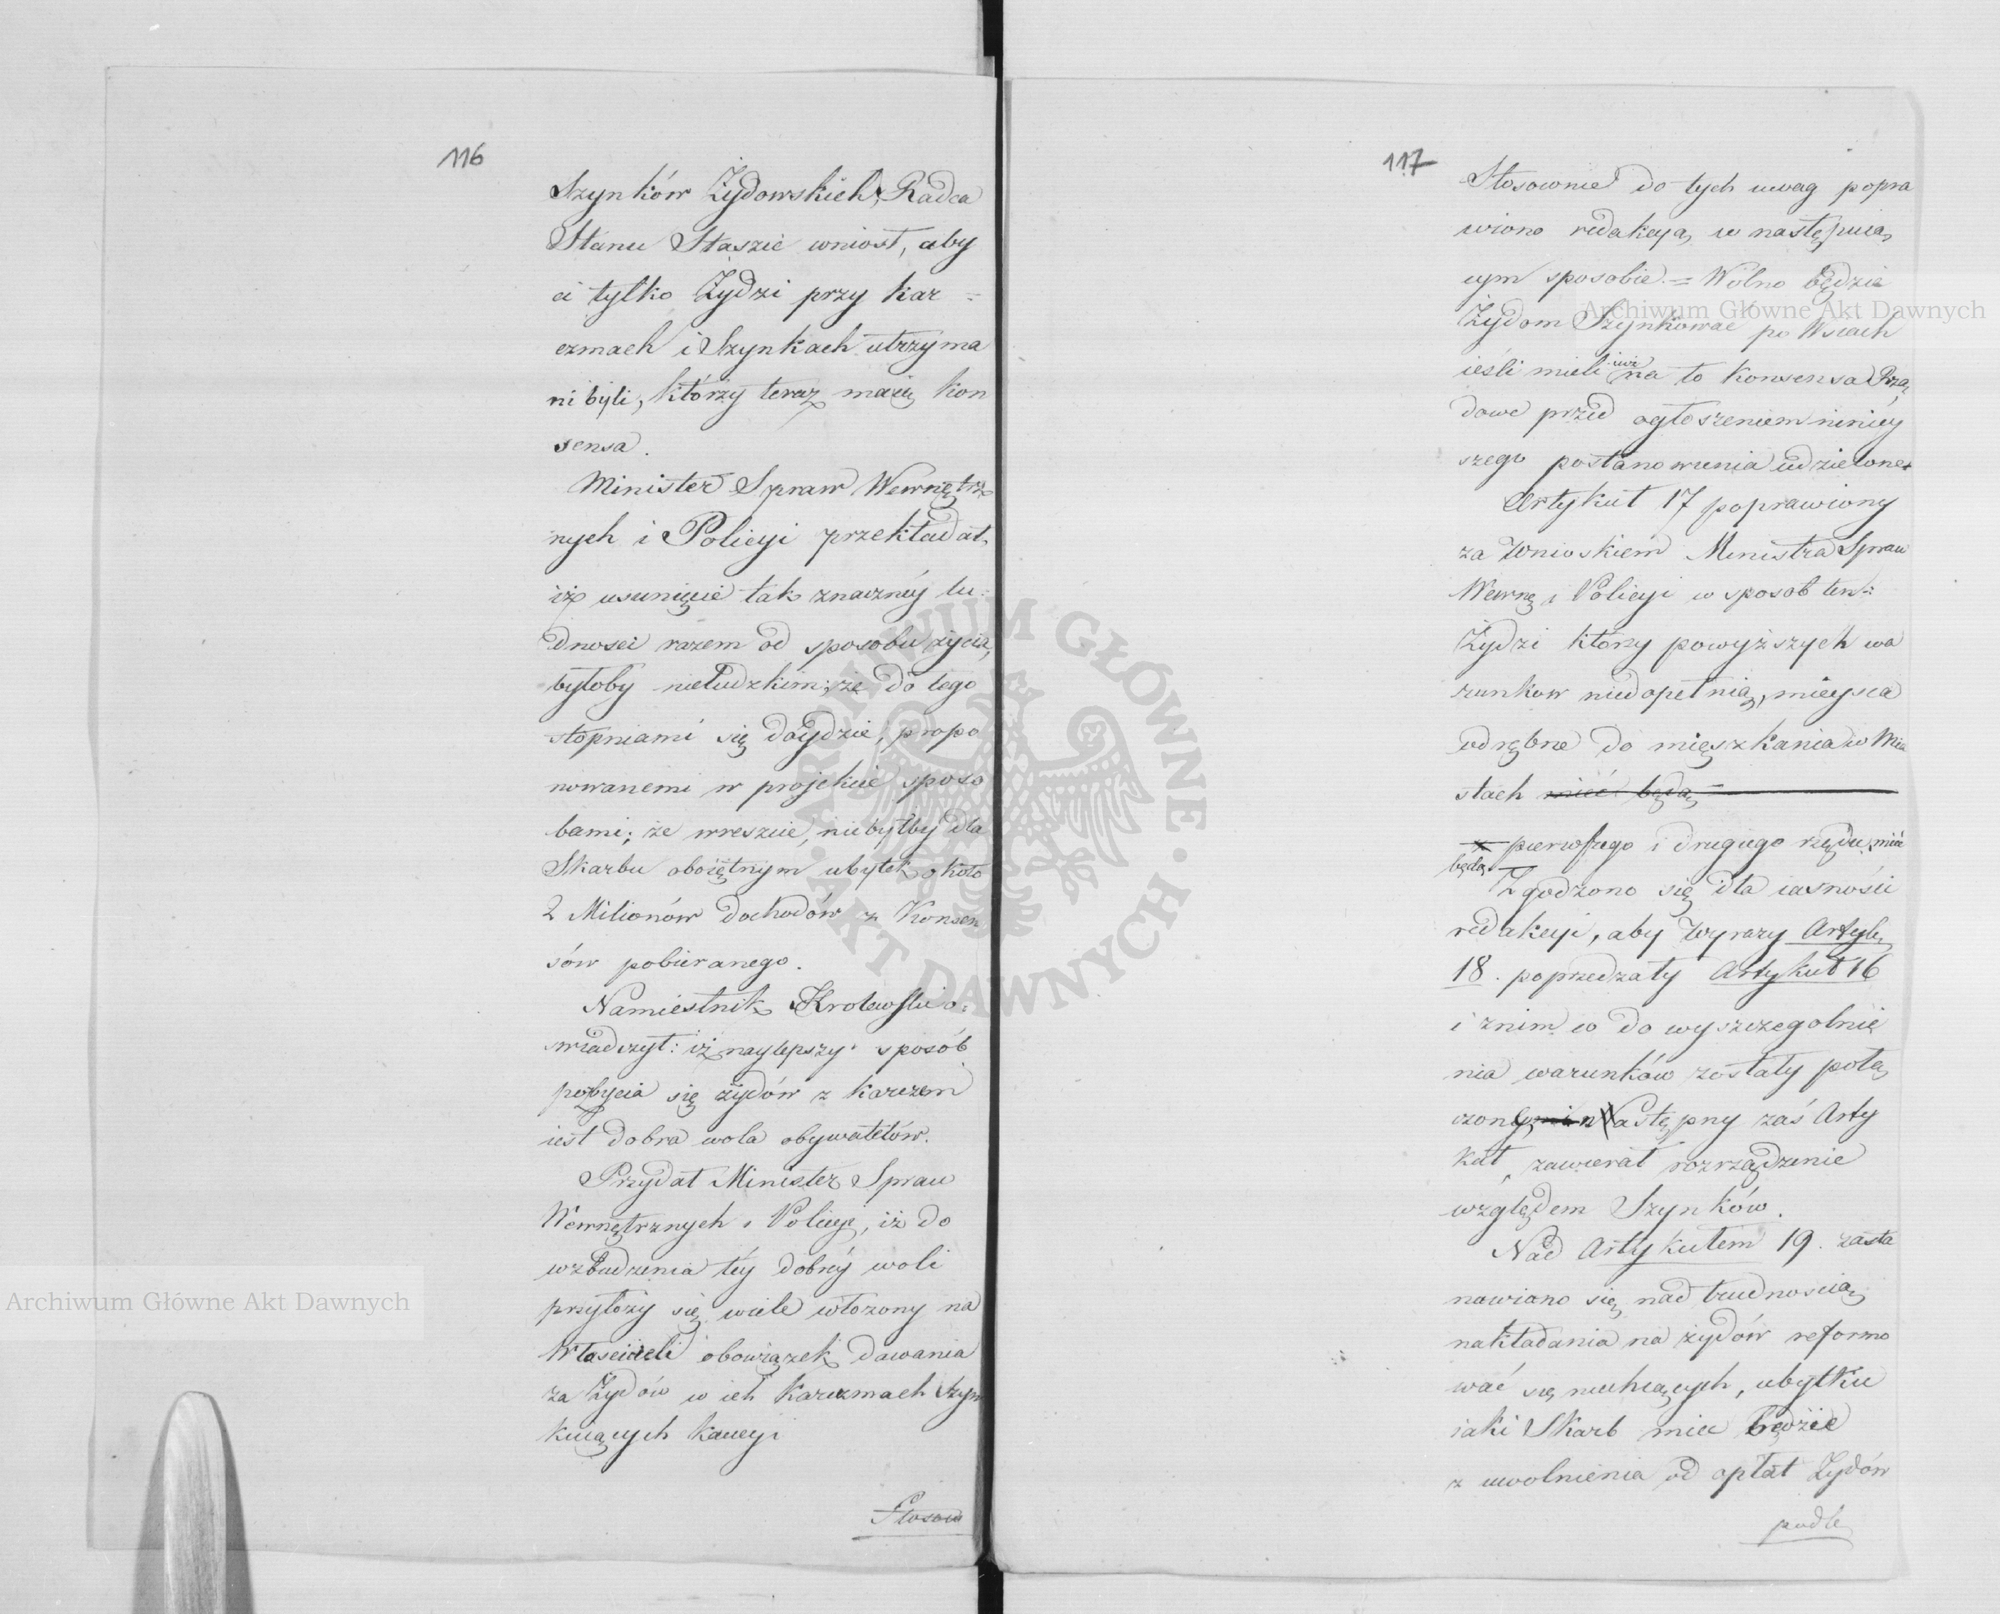 116
Szynków Żydowskich, Radca
Stanu Staszic wniosł, aby
ci tylko Żydzi przy kar=
czmach i Szynkach utrzyma
ni byli, którzy teraz maią kon
sensa.
Minister Spraw Wewnętrz
nych i Policyi przekładał,
iż usunięcie tak znacznéy lu=
dnosci razem od sposobu życia,
byłoby nieludzkim; że do tego
stopniami się doydzie, propo
nowanemi w projekcie sposo
bami; że wreszcie, niebyłby dla
Skarbu oboiętnym ubytek około
2 Milionów dochodów z Konsen
sów pobieranego.
Namiestnik Krolewski o=
swiadczył: iż naylepszy sposób
pozbycia się żydów z karczem
iest dobra wola obywatelów.
Przydał Minister Spraw
Wewnętrznych i Policyi, iż do
wzbudzenia téy dobréy woli
przyłoży się wiele włożony na
Właścicieli obowiązek dawania
za Żydów w ich Karczmach Szyn
kuiących kaucyi
Stosow
117
Stosownie do tych uwag popra
wiono redakcyą w następuią
cym sposobie = Wolno będzie
Żydom Szynkować po Wsiach
ieśli mieli iuż na to Konsensa Rzą
dowe przed ogłoszeniem niniéy
szego postanowienia udzielone.
Artykuł 17 poprawiony
za Wnioskiem Ministra Spraw
Wewnę i Policyi w sposob ten:
Żydzi którzy powyższych wa
runkow niedopełnią, mieysca
odrębne do mięszkania w Mia
stach mieć będą
pierwszego i drugiego rzędu, mić
będą
Zgodzono się dla iasności
redakcyi, aby Wyrazy Artykł
18. poprzedzały Artykuł 16
i z nim co do wyszczegolnie
nia warunków zostały połą
czone, Następny zaś Arty
kuł, zawierał rozrządzenie
względem Szynków.
Nad Artykułem 19. zasta
nawiano się nad trudnością
nakładania na żydów reformo
wać się niechcących, ubytku
iaki Skarb mieć będzie
z uwolnienia od opłat Żydów
podle
Archiwum Główne Akt Dawnych
Archiwum Główne Akt Dawnych
ARCHIWUM GŁÓWNE
AKT DAWNYCH